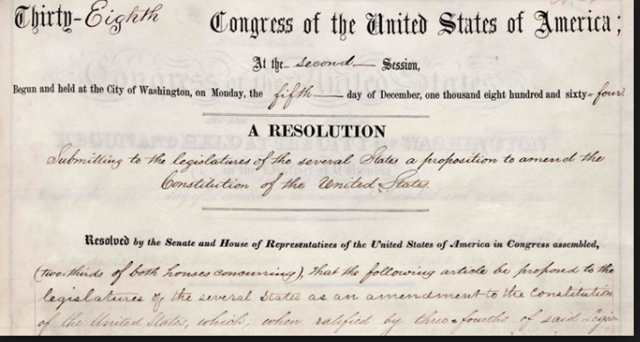 Thirty-Eighth Congress of the United States of America;
At the second Session,
Begun and held at the City of Washington, on Monday, the fifth day of December, one thousand eight hundred and sixty-four
A RESOLUTION
Submitting to the legislatures of the several States a proposition to amend the
Constitution of the United States.
Resolved by the Senate and House of Representatives of the United States of America in Congress assembled,
(two-thirds of both houses concurring), That the following article be proposed to the
legislatures of the several States as an amendment to the Constitution
of the United States, which, when ratified by three-fourths of said Legis